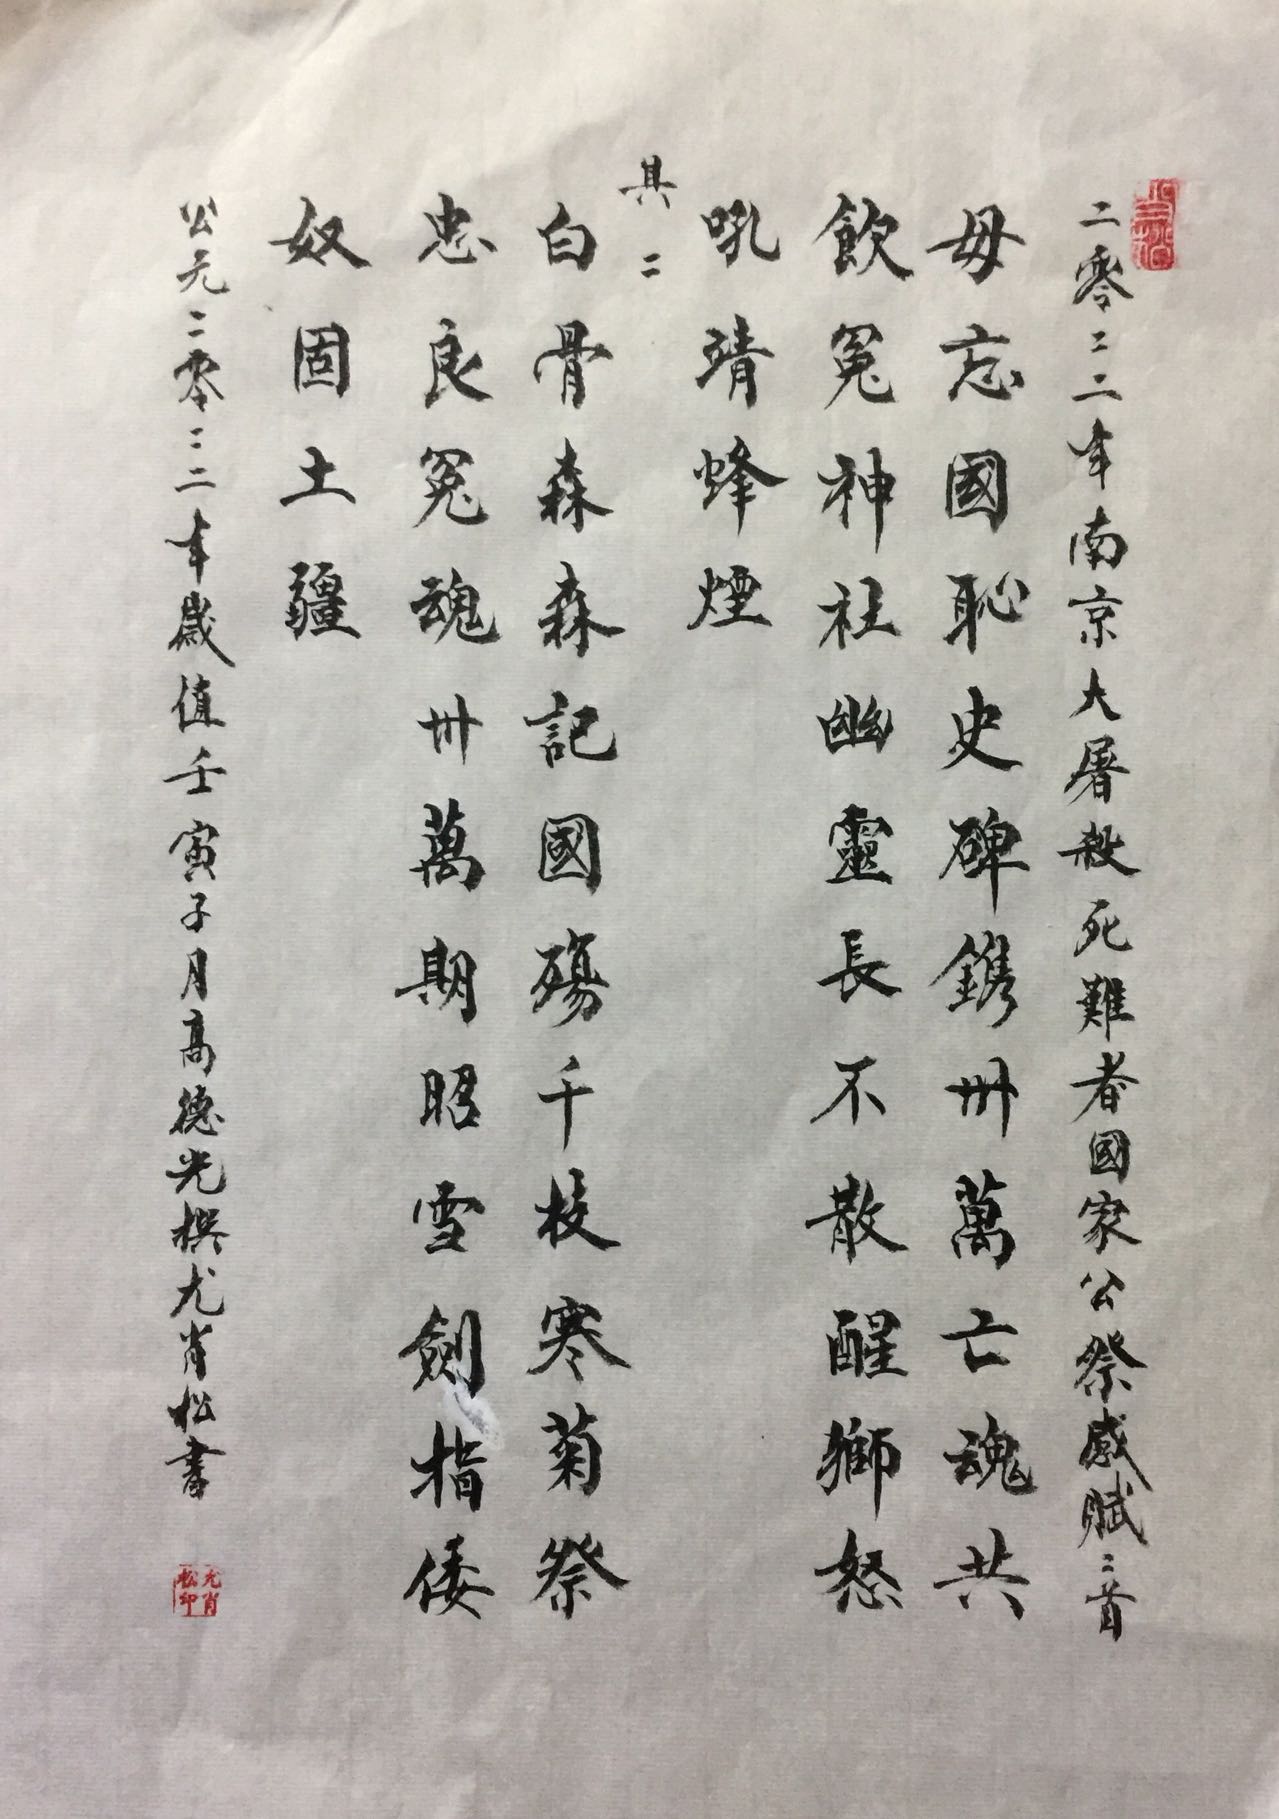 二零二二年南京大屠殺死難者國家公祭感賦二首
毋忘國恥史碑鐫卅萬亡魂共
飲冤神社幽靈長不散醒獅怒
吼靖蜂煙
其二
白骨森森記國殤千枝寒菊祭
忠良冤魂卅萬期昭雪劍指倭
奴固土疆
公元二零二二年歲值壬寅子月高德光撰尤肖松書
尤肖松印